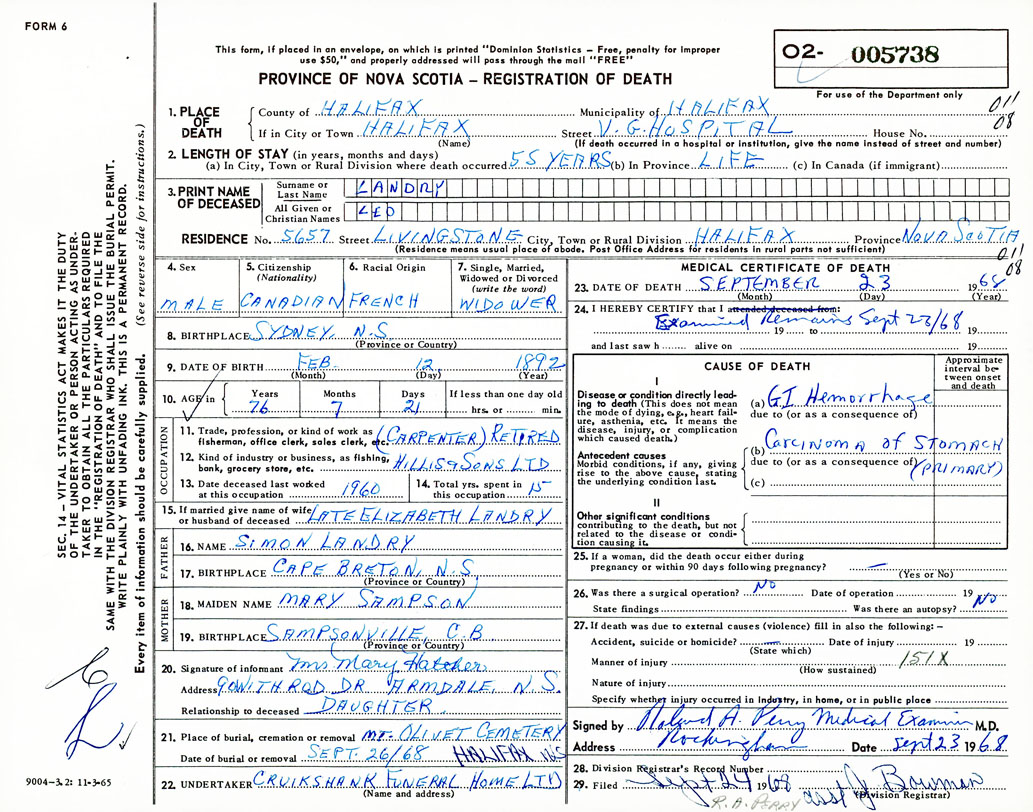 FORM 6
This form, if placed in an envelope, on which is printed "Dominion Statistics – Free, penalty for improper
use $50," and properly addressed will pass through the mail "FREE"
PROVINCE OF NOVA SCOTIA – REGISTRATION OF DEATH
O2- 005738
For use of the Department only
011
08
1. PLACE OF DEATH
County of HALIFAX Municipality of HALIFAX
If in City or Town HALIFAX Street V.G. HOSPITAL House No.
(Name) (If death occurred in a hospital or institution, give the name instead of street and number)
2. LENGTH OF STAY (in years, months and days)
(a) In City, Town or Rural Division where death occurred 55 YEARS (b) In Province LIFE (c) In Canada (if immigrant)
3. PRINT NAME OF DECEASED
Surname or Last Name LANDRY
All Given or Christian Names LEO
RESIDENCE No. 5657 Street LIVINGSTONE City, Town or Rural Division HALIFAX Province NOVA SCOTIA
(Residence means usual place of abode. Post Office Address for residents in rural parts not sufficient)
011
08
4. Sex
MALE
5. Citizenship (Nationality)
CANADIAN
6. Racial Origin
FRENCH
7. Single, Married, Widowed or Divorced (write the word)
WIDOWER
8. BIRTHPLACE SYDNEY, N.S.
(Province or Country)
9. DATE OF BIRTH FEB. 12 1892
(Month) (Day) (Year)
10. AGE in Years Months Days If less than one day old
76 7 21 hrs. or min.
OCCUPATION
11. Trade, profession, or kind of work as
fisherman, office clerk, sales clerk, etc. (CARPENTER) RETIRED
12. Kind of industry or business, as fishing,
bank, grocery store, etc. HILLIS & SONS LTD
13. Date deceased last worked
at this occupation 1960
14. Total yrs. spent in
this occupation 15
15. If married give name of wife
or husband of deceased LATE ELIZABETH LANDRY
FATHER
16. NAME SIMON LANDRY
17. BIRTHPLACE CAPE BRETON, N.S.
(Province or Country)
MOTHER
18. MAIDEN NAME MARY SAMPSON
19. BIRTHPLACE SAMPSONVILLE, C.B
(Province or Country)
20. Signature of informant Mrs Mary Hatcher
Address 90 WITHROD DR ARMDALE, N.S.
Relationship to deceased DAUGHTER
21. Place of burial, cremation or removal MT. OLIVET CEMETERY
Date of burial or removal SEPT. 26/68 HALIFAX N.S
22. UNDERTAKER CRUIKSHANK FUNERAL HOME LTD
(Name and address)
MEDICAL CERTIFICATE OF DEATH
23. DATE OF DEATH SEPTEMBER 23 1968
(Month) (Day) (Year)
24. I HEREBY CERTIFY that I attended deceased from:
Examined Remains Sept 23/68
19 to 19
and last saw h alive on 19
CAUSE OF DEATH
Approximate interval between onset and death
I
Disease or condition directly leading to death (This does not mean the mode of dying, e.g., heart failure, asthenia, etc. It means the disease, injury, or complication which caused death.)
(a) GI Hemorrhage
due to (or as a consequence of)
Antecedent causes
Morbid conditions, if any, giving rise to the above cause, stating the underlying condition last.
(b) Carcinoma of STOMACH
due to (or as a consequence of) (PRIMARY)
(c)
II
Other significant conditions
contributing to the death, but not
related to the disease or condition causing it.
25. If a woman, did the death occur either during
pregnancy or within 90 days following pregnancy? —
(Yes or No)
26. Was there a surgical operation? NO Date of operation 19
State findings Was there an autopsy? NO
27. If death was due to external causes (violence) fill in also the following: –
Accident, suicide or homicide? — Date of injury 19
(State which)
Manner of injury 151X
(How sustained)
Nature of injury
Specify whether injury occurred in industry, in home, or in public place
Signed by Roland A. Perry Medical Examiner M.D.
Address Rockingham Date Sept 23 1968
28. Division Registrar's Record Number
29. Filed Sept 24 1968 asst J Bowman
(Division Registrar)
R. A. PERRY
SEC. 14 – VITAL STATISTICS ACT MAKES IT THE DUTY
OF THE UNDERTAKER OR PERSON ACTING AS UNDER-
TAKER TO OBTAIN ALL THE PARTICULARS REQUIRED
IN THE "REGISTRATION OF DEATH" AND TO FILE THE
SAME WITH THE DIVISION REGISTRAR WHO SHALL ISSUE THE BURIAL PERMIT.
WRITE PLAINLY WITH UNFADING INK. THIS IS A PERMANENT RECORD.
Every item of information should be carefully supplied. (See reverse side for instructions.)
9004-3.2: 11-3-65